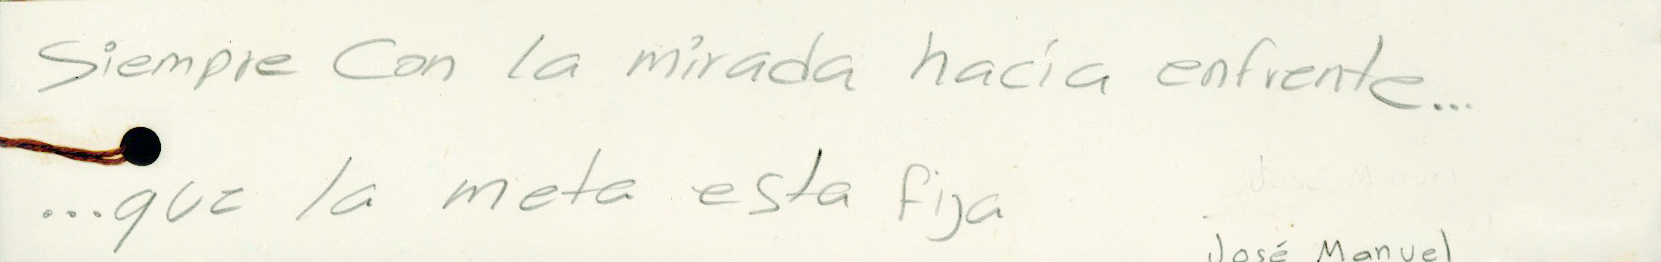 Siempre Con la mirada hacía enfrente...
...que la meta esta fija
José Manuel